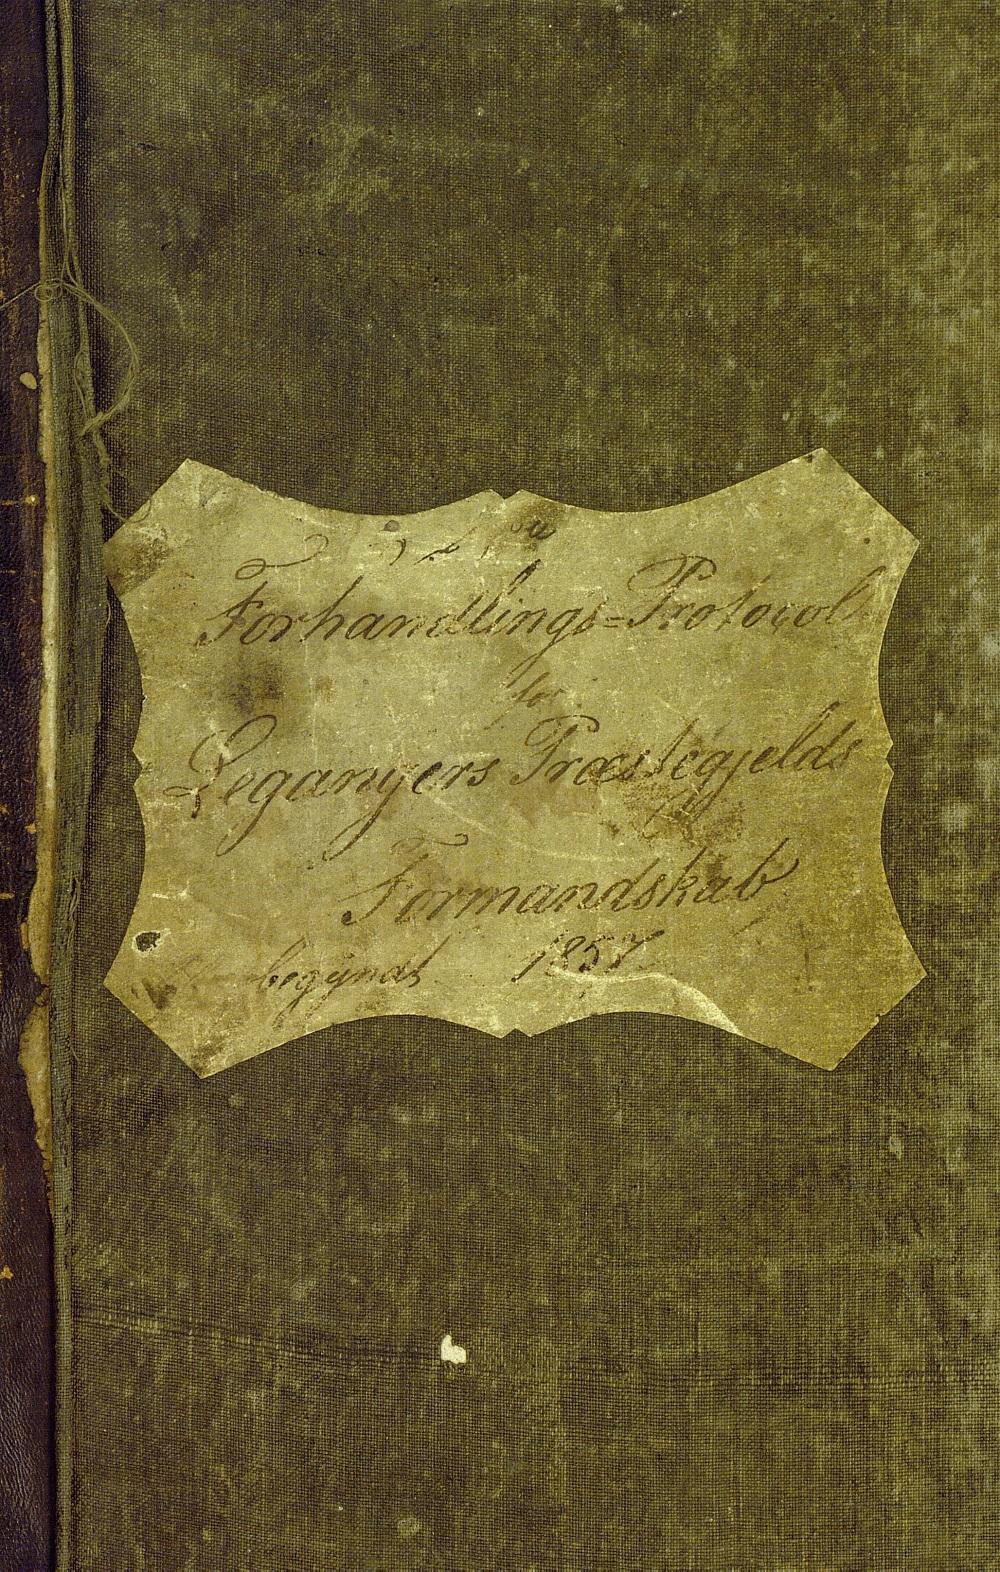 Forhandlings=Protocol
for
Leganyers Præstegjelds
Formandskab
begyndt 1857